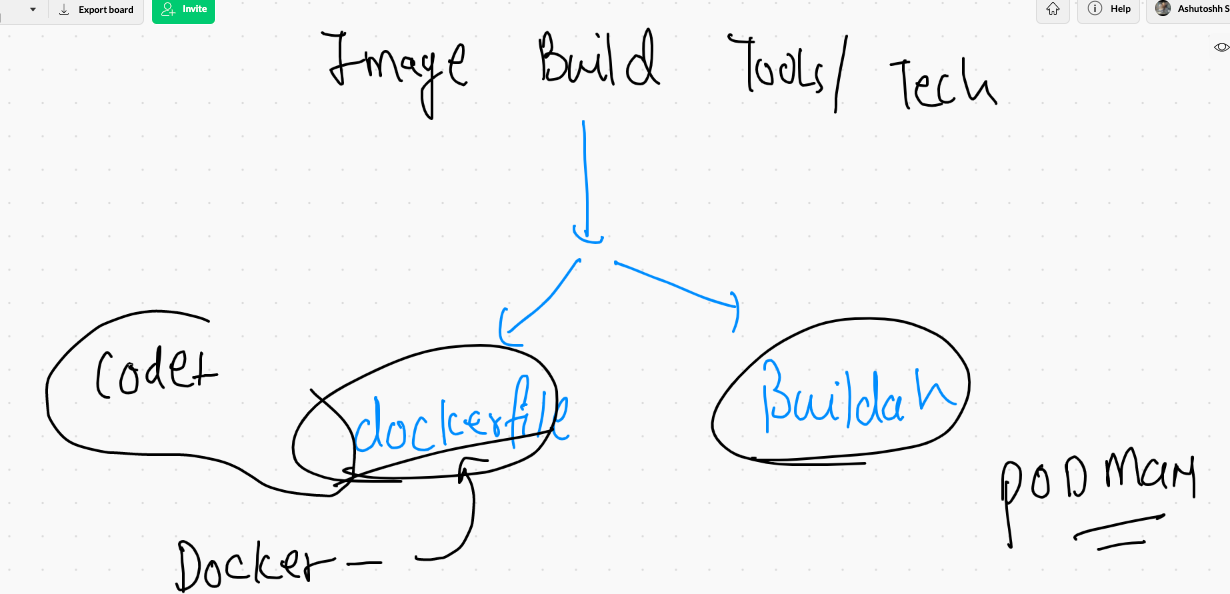 Export board
Invite
Help
Ashutoshh S
Image Build Tools/ Tech
dockerfile
Buildah
PODMAN
Docker —